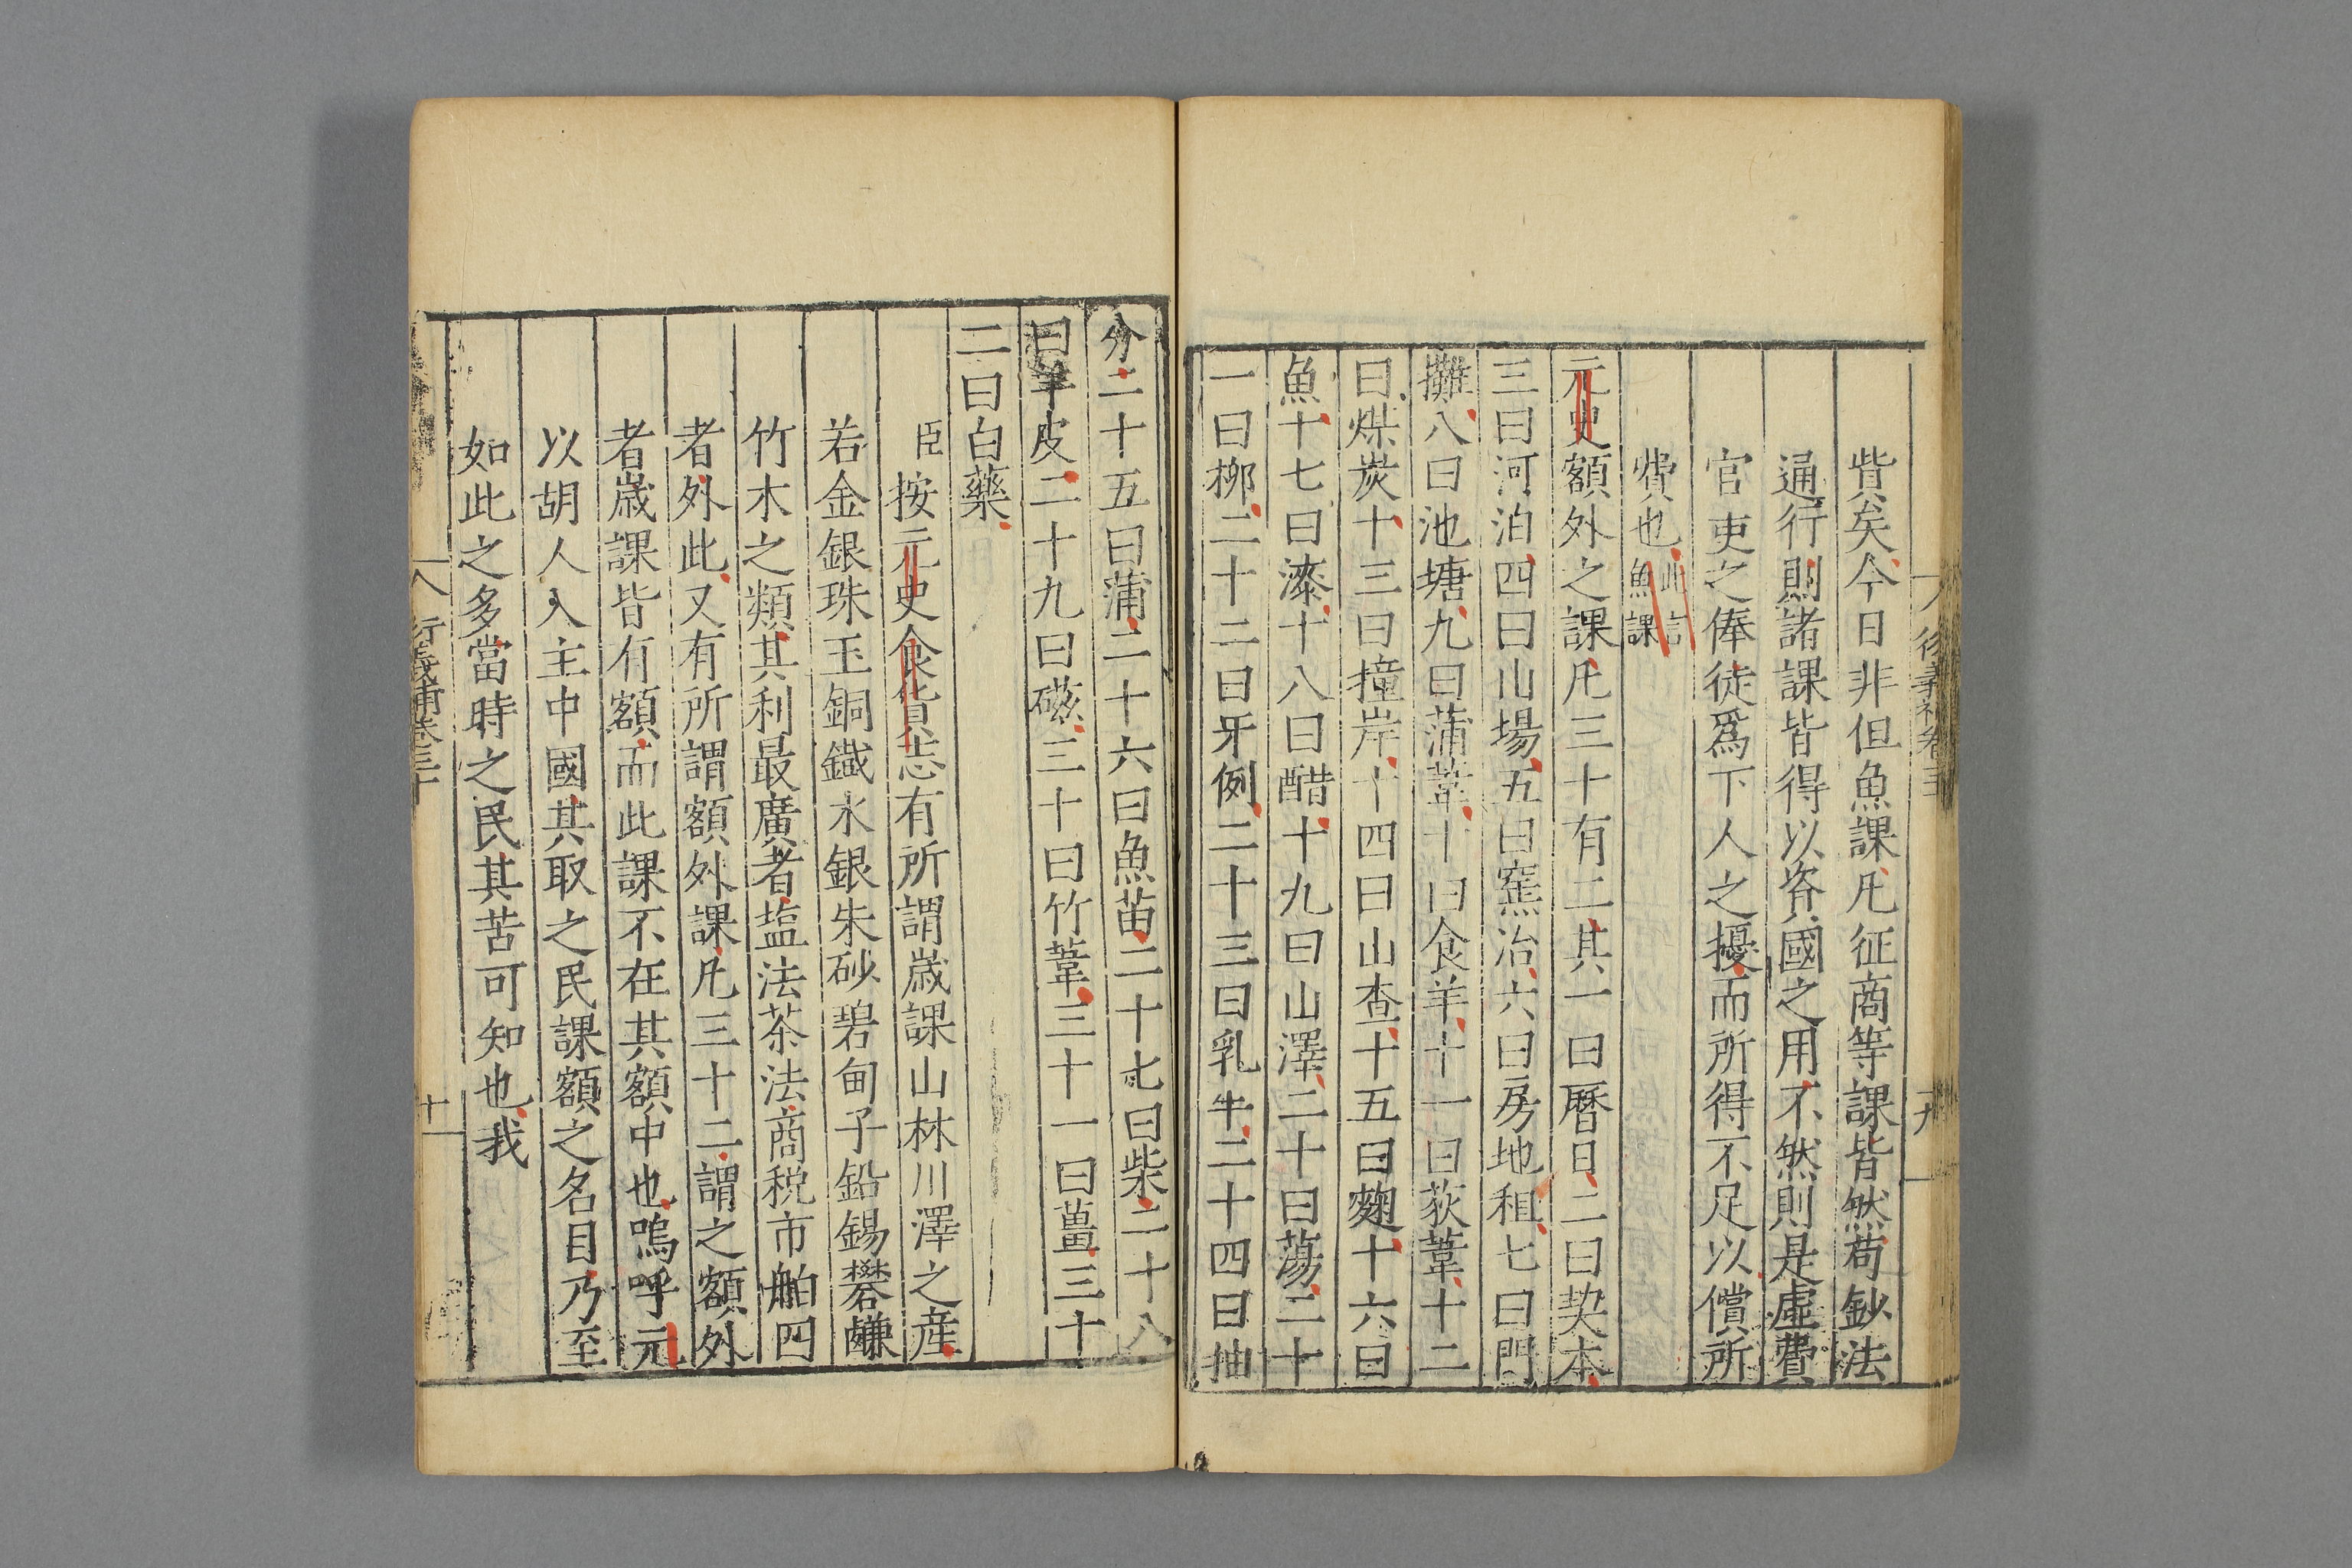 貲矣今日非但魚課凡征商等課皆然苟鈔法
通行則諸課皆得以資國之用不然則是虛費
官吏之俸徒爲下人之擾而所得不足以償所
費也此言魚課
元史額外之課凡三十有二其一曰曆日二曰契本
三曰河泊四曰山場五曰窰冶六曰房地租七曰門
攤八曰池塘九曰蒲葦十曰食羊十一曰荻葦十二
曰煤炭十三曰撞岸十四曰山查十五曰麹十六曰
魚十七曰漆十八曰醋十九曰山澤二十曰蕩二十
一曰柳二十二曰牙例二十三曰乳牛二十四曰抽
分二十五曰蒲二十六曰魚苗二十七曰柴二十八
曰羊皮二十九曰磁三十曰竹葦三十一曰薑三十
二曰白藥
臣按元史食貨志有所謂歲課山林川澤之産
若金銀珠玉銅鐵水銀朱砂碧甸子鉛錫礬鹻
竹木之類其利最廣者塩法茶法商稅市舶四
者外此又有所謂額外課凡三十二謂之額外
者歲課皆有額而此課不在其額中也嗚呼元
以胡人入主中國其取之民課額之名目乃至
如此之多當時之民其苦可知也我
衍義補卷三十
十